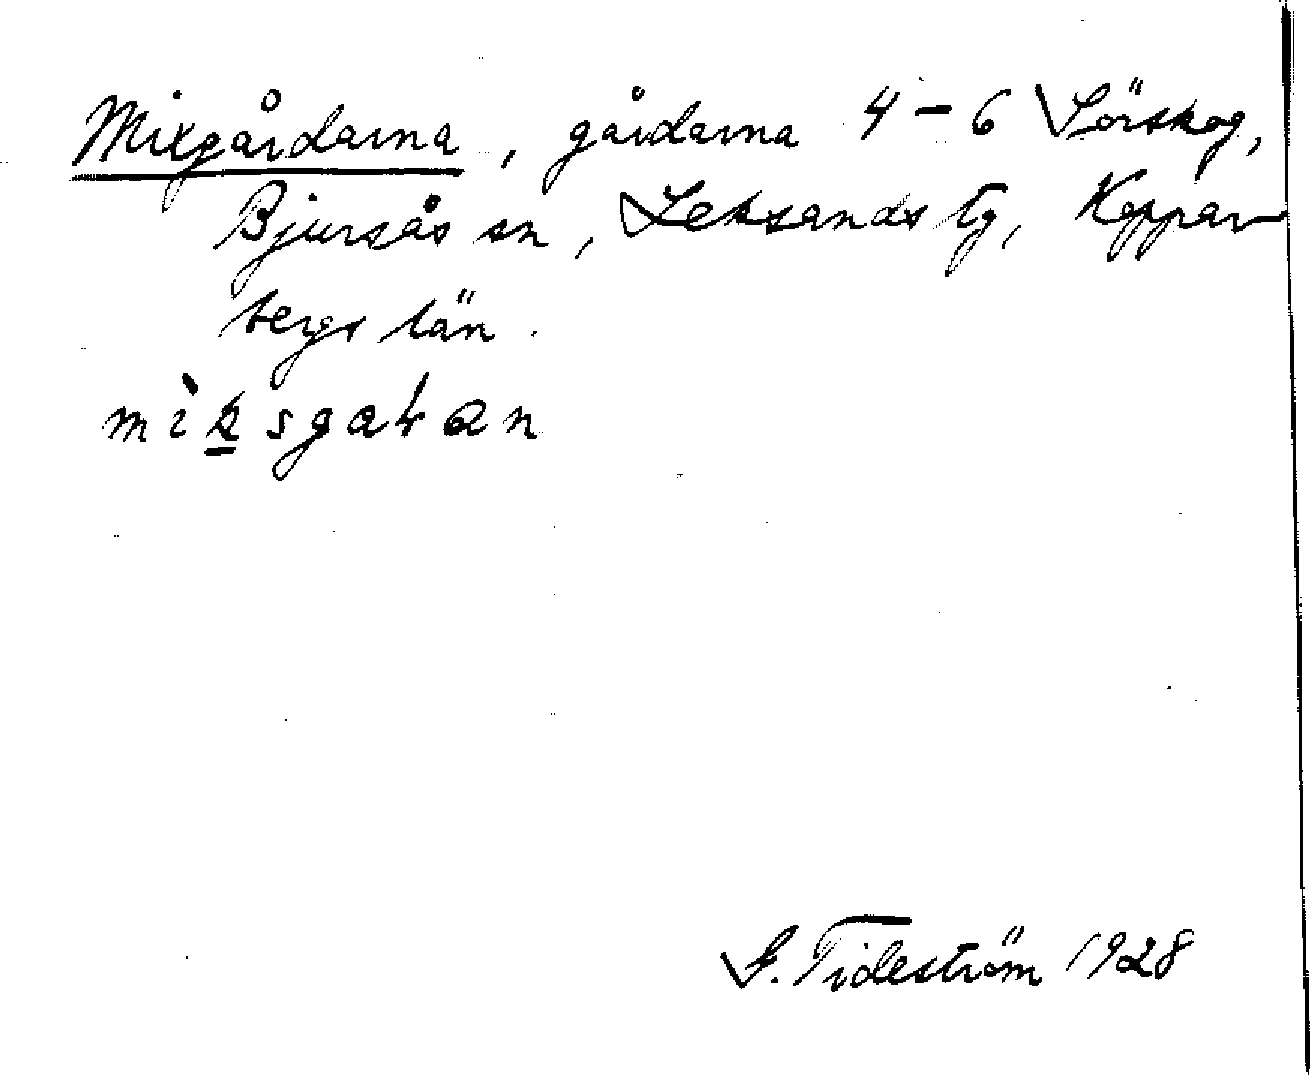 Mixgårdarna, gårdarna 4-6 Sörskog,
Bjursås sn, Leksands tg, Koppar
bergs län.
G. Tideström 1928